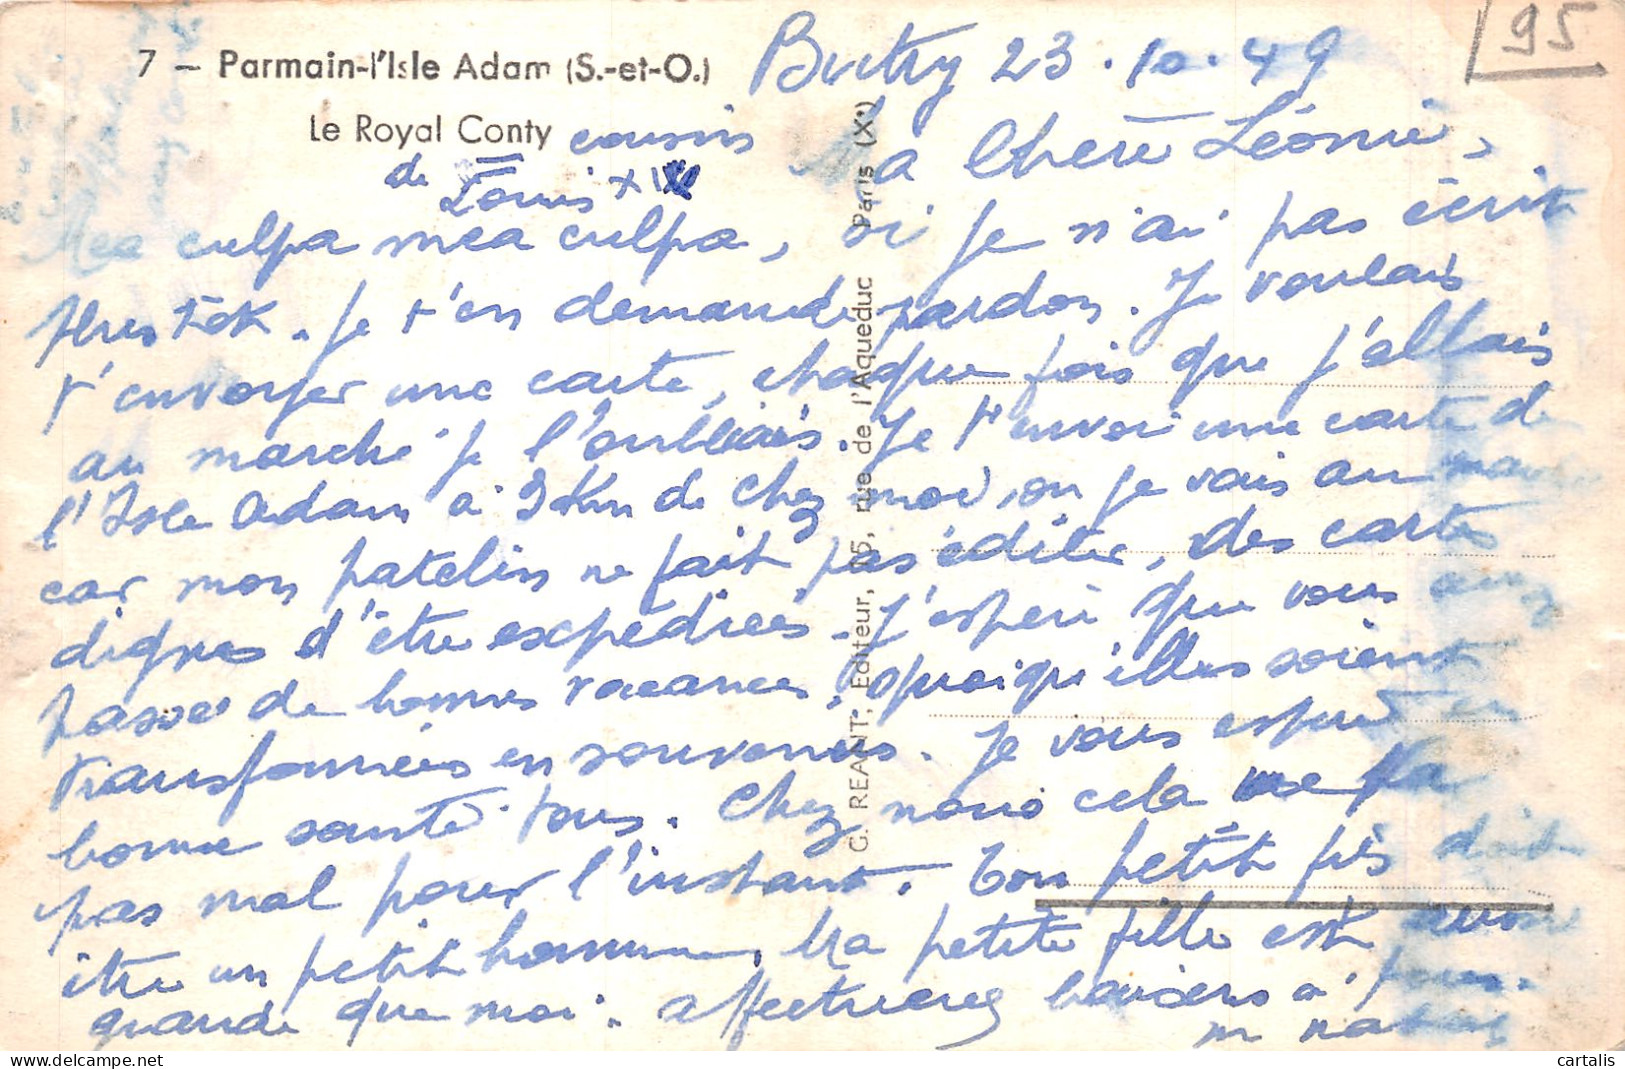 95
7 — Parmain-l'Isle Adam (S.-et-O.)
Butry 23.10.49
Le Royal Conty cousin
de Louis XIII
Ma Chère Léonie,
Mea culpa mea culpa, si je n'ai pas écrit
plus tôt. Je t'en demande pardon. Je voulais
t'envoyer une carte, chaque fois que j'allais
au marché je l'oubliais. Je t'envoi une carte de
l'Isle Adam à 3 Km de chez moi, ou je vais au marché
car mon patelin ne fait pas éditer, des cartes
dignes d'être expédiées. J'espère que vous avez
passer de bonnes vacances, quoiqu'elles soient
transformées en souvenirs. Je vous espère en
bonne santé tous. Chez nous cela ne va
pas mal pour l'instant. Ton petit fils doit
être un petit homme, Ma petite fille est aussi
grande que moi. affectueux baisers à tous.
m
G. REANT, Editeur, rue de l'Aqueduc Paris (Xe)
cartalis